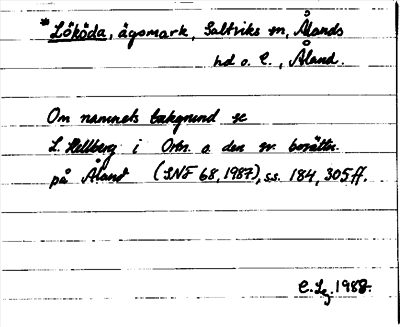 * Lököda, ägomark, Saltviks sn, Ålands
hd o. l., Åland.
Om namnets bakgrund se
L. Hellberg i Ortn. o. den sv. bosättn.
på Åland (SNF 68, 1987), ss. 184, 305 ff.
C. Lg. 1988.